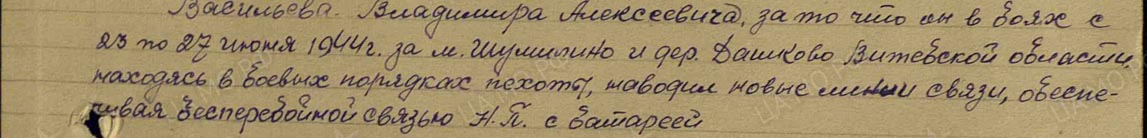 Васильева Владимира Алексеевича, за то что он в боях с
23 по 27 июня 1944г. за м. Шумилино и дер. Дашково Витебской области,
находясь в боевых порядках пехоты, наводил новые линии связи, обеспе-
чивая бесперебойной связью Н.П. с батареей